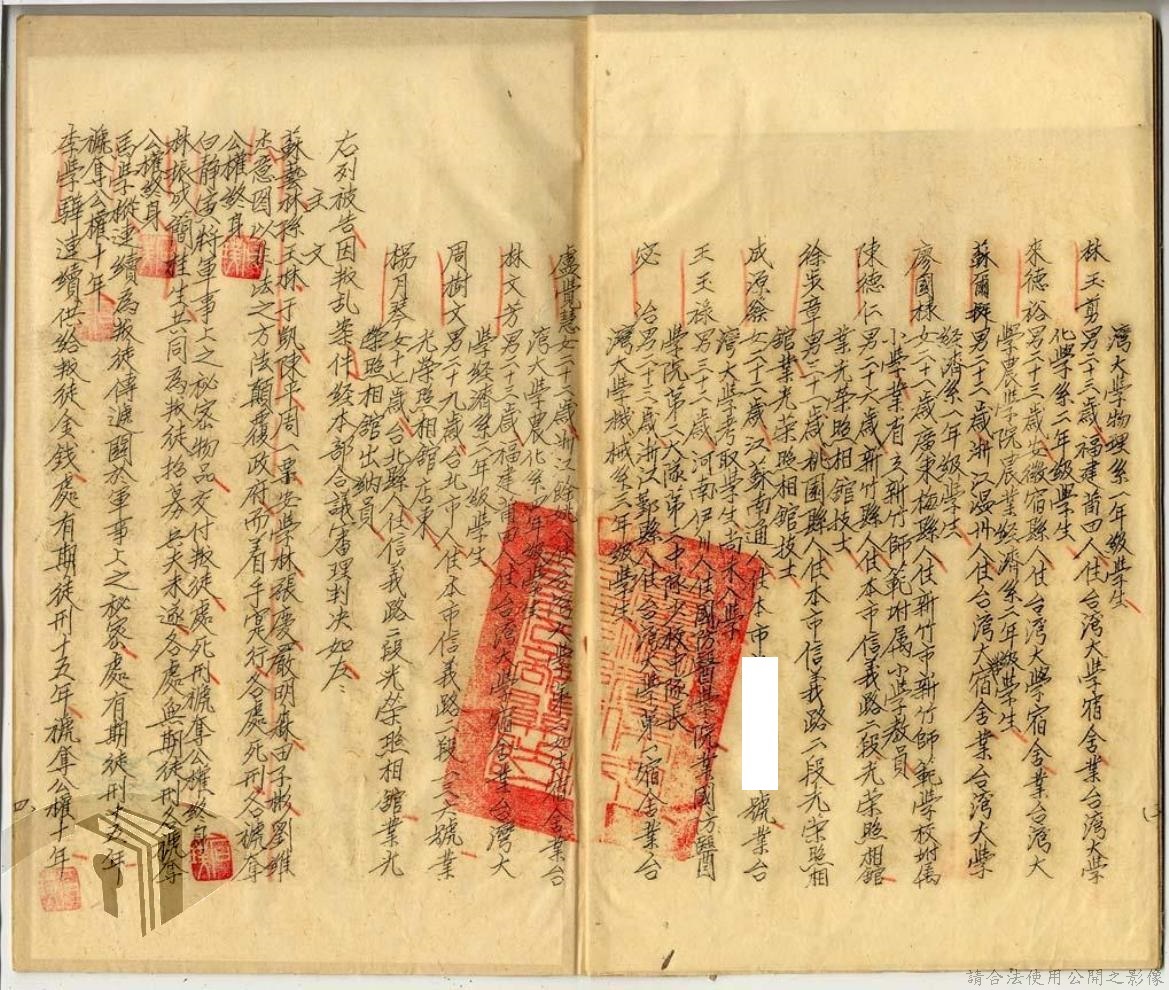 灣大學物理系一年級學生
林玉剪男二十三歲福建莆田人住台灣大學宿舍業台灣大學
化學系二年級學生
來德裕男二十三歲安徽宿縣人住台灣大學宿舍業台灣大
學農學院農業經濟系二年級學生
蘇爾挺男二十二歲浙江溫州人住台灣大宿舍業台灣大學
經濟系一年級學生
廖國椂女二十八歲廣東梅縣人住新竹市新竹師範學校附属
小學業省立新竹師範附属小學教員
陳德仁男二十六歲新竹縣人住本市信義路二段光榮照相舘
業光榮照相舘技士
徐步章男二十一歲桃園縣人住本市信義路二段光榮照相
舘業光榮照相舘技士
成源蓉女二十二歲江蘇南通 住本市 號業台
灣大學考取學生尚未入學
王玉祿男三十二歲河南伊川人住國防醫學院業國方醫
學院第二大隊第一中隊少校中隊長
宓治男二十三歲浙江鄞縣人住台灣大學第八宿舍業台
灣大學機械系三年級學生
盧覺慧女二十二歲浙江餘姚 大學 舍業台
灣大學農化系 年級學生
林文芳男二十三歲福建莆田 住台灣大學宿舍業台灣大
學經濟系二年級學生
周樹文男二十九歲台北市人住本市信義路二段一三六號業
光榮照相舘店東
楊月琴女十七歲台北縣人住信義路二段光榮照相舘業光
榮照相舘出納員
右列被告因叛乱案件經本部合議審理判决如左：
主文
蘇藝林孫玉林于凱陳平周一粟安學林張慶嚴明森田子彬劉維
杰意圖以非法之方法顛覆政府而着手實行各處死刑各褫奪
公權終身
白靜寅將軍事上之秘密物品交付叛徒處死刑褫奪公權終身
林振成簡桂生共同為叛徒招募兵夫未遂各處無期徒刑各褫奪
公權終身
馬學樅連續為叛徒傳遞關於軍事上之秘密處有期徒刑十五年
褫奪公權十年
李學驊連續供給叛徒金錢處有期徒刑十五年褫奪公權十年
四
請合法使用公開之影像